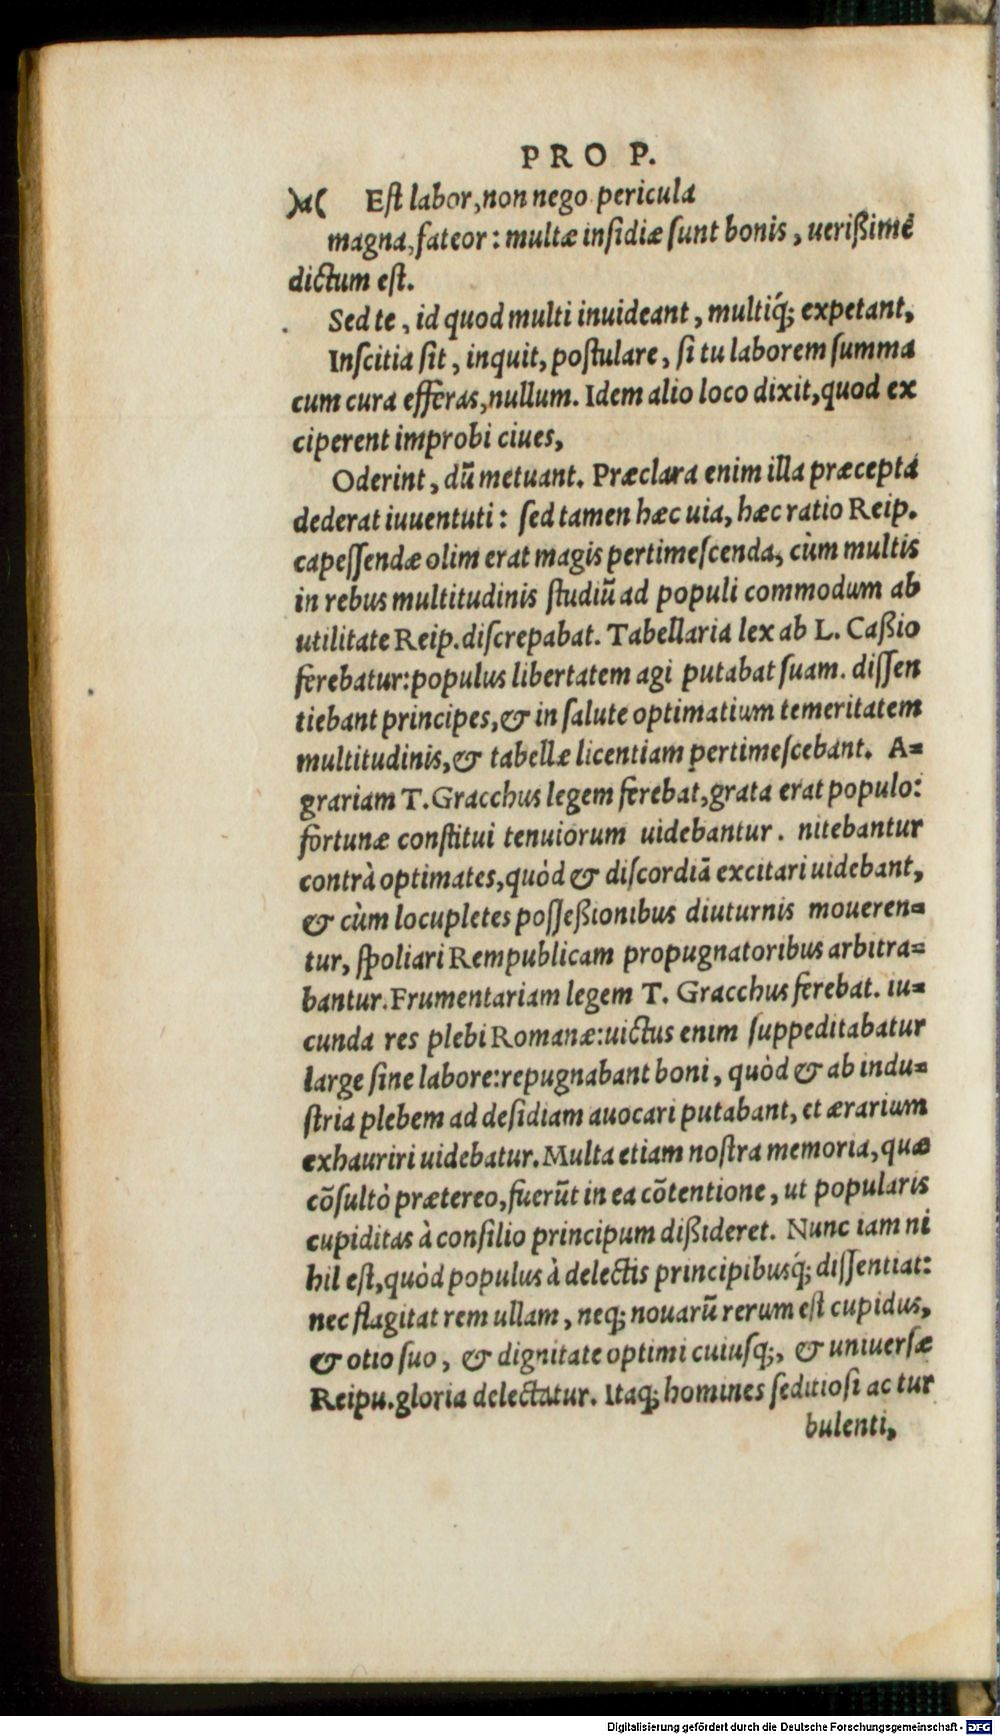 PRO P.
)a( Est labor, non nego pericula
magna, fateor: multæ insidiæ sunt bonis, uerißimè
dictum est.
Sed te, id quod multi inuideant, multiq́; expetant,
Inscitia sit, inquit, postulare, si tu laborem summa
cum cura efferas, nullum. Idem alio loco dixit, quod ex
ciperent improbi ciues,
Oderint, dū metuant. Præclara enim illa præcepta
dederat iuuentuti: sed tamen hæc uia, hæc ratio Reip.
capessendæ olim erat magis pertimescenda, cùm multis
in rebus multitudinis studiū ad populi commodum ab
utilitate Reip. discrepabat. Tabellaria lex ab L. Caßio
ferebatur: populus libertatem agi putabat suam. dissen
tiebant principes, & in salute optimatium temeritatem
multitudinis, & tabellæ licentiam pertimescebant. A=
grariam T. Gracchus legem ferebat, grata erat populo:
fortunæ constitui tenuiorum uidebantur. nitebantur
contrà optimates, quòd & discordiā excitari uidebant,
& cùm locupletes posseßionibus diuturnis moueren=
tur, spoliari Rempublicam propugnatoribus arbitra=
bantur. Frumentariam legem T. Gracchus ferebat. iu=
cunda res plebi Romanæ: uictus enim suppeditabatur
large sine labore: repugnabant boni, quòd & ab indu=
stria plebem ad desidiam auocari putabant, et ærarium
exhauriri uidebatur. Multa etiam nostra memoria, quæ
cōsultò prætereo, fuerūt in ea cōtentione, ut popularis
cupiditas à consilio principum dißideret. Nunc iam ni
hil est, quòd populus à delectis principibusq́; dissentiat:
nec flagitat rem ullam, neq; nouarū rerum est cupidus,
& otio suo, & dignitate optimi cuiusq;, & uniuersæ
Reipu. gloria delectatur. Itaq; homines seditiosi ac tur
bulenti,
Digitalisierung gefördert durch die Deutsche Forschungsgemeinschaft - DFG